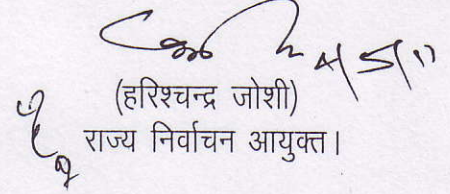 4/5/17
(हरिश्चन्द्र जोशी)
राज्य निर्वाचन आयुक्त।